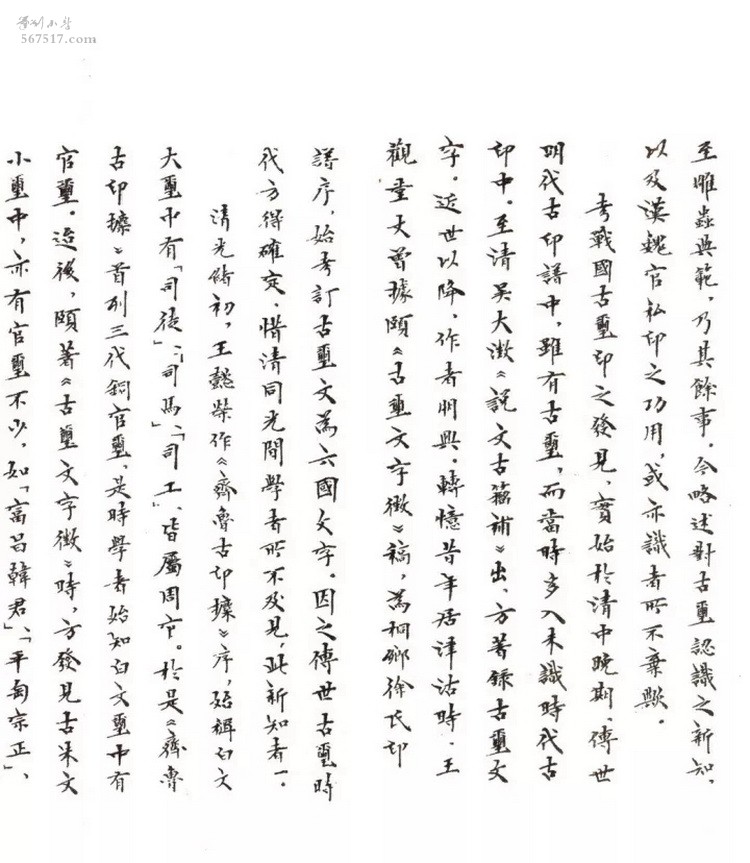 篆刻小登
567517.com
至雕蟲與範，乃其餘事。今略述對古璽認識之新知、
以及漢魏官私印之功用，或亦識者所不棄歟。
考戰國古璽印之發見，實始於清中晚期、傳世
明代古印譜中，雖有古璽，而當時多入未識時代古
印中。至清吳大澂《說文古籀補》出、方著錄古璽文
字。近世以降、作者朋興。轉憶昔年居津沽時、王
觀堂丈曾據頤《古璽文字徵》稿，為桐鄉徐氏印
譜序，始考訂古璽文為六國文字。因之傳世古璽時
代方得確定、惜清同光間學者所不及見，此新知者一。
清光緒初，王懿榮作《齊魯古印攈》序，始稱白文
大璽中有「司徒」、「司馬」、「司工」、皆屬周官。於是《齊魯
古印攈》首列三代銅官璽、是時學者始知白文璽中有
官璽。迨後，頤著《古璽文字徵》時，方發見古朱文
小璽中，亦有官璽不少，如「富昌韓君」、「平匋宗正」、